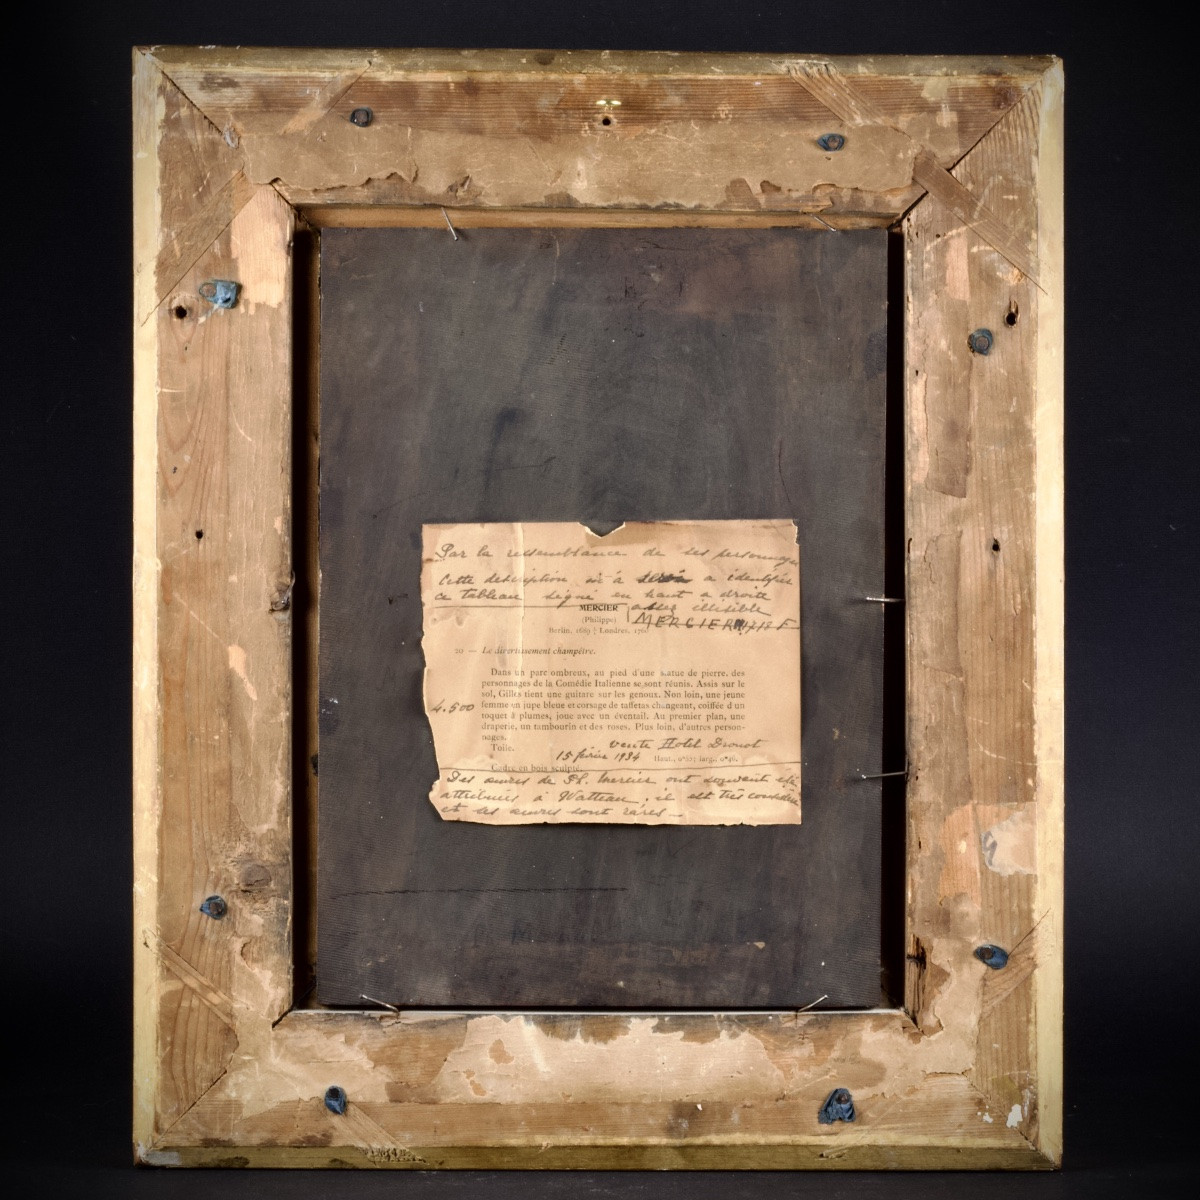 Par la ressemblance de ses personnages
cette description m'a a identifier
ce tableau signé en haut a droite
assez illisible
MERCIER
(Philippe) MERCIER 1718 F
Berlin, 1689 † Londres, 1760
20 — Le divertissement champêtre.
Dans un parc ombreux, au pied d'une statue de pierre, des
personnages de la Comédie Italienne se sont réunis. Assis sur le
sol, Gilles tient une guitare sur les genoux. Non loin, une jeune
4.500 femme en jupe bleue et corsage de taffetas changeant, coiffée d'un
toquet à plumes, joue avec un éventail. Au premier plan, une
draperie, un tambourin et des roses. Plus loin, d'autres person-
nages.
Toile. vente Hotel Drouot
15 février 1934 Haut., larg., 0m46.
Cadre en bois sculpté.
Des œuvres de Ph. Mercier ont souvent été
attribuées à Watteau, il est très considéré
et ses œuvres sont rares —